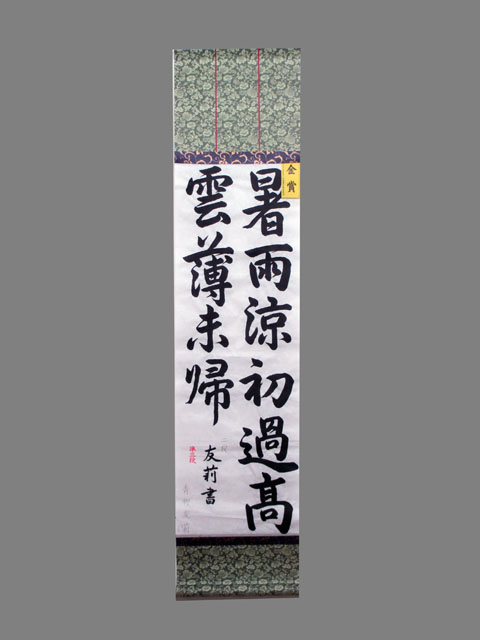 金賞
暑雨涼初過高
雲薄未帰
友莉書
準三段